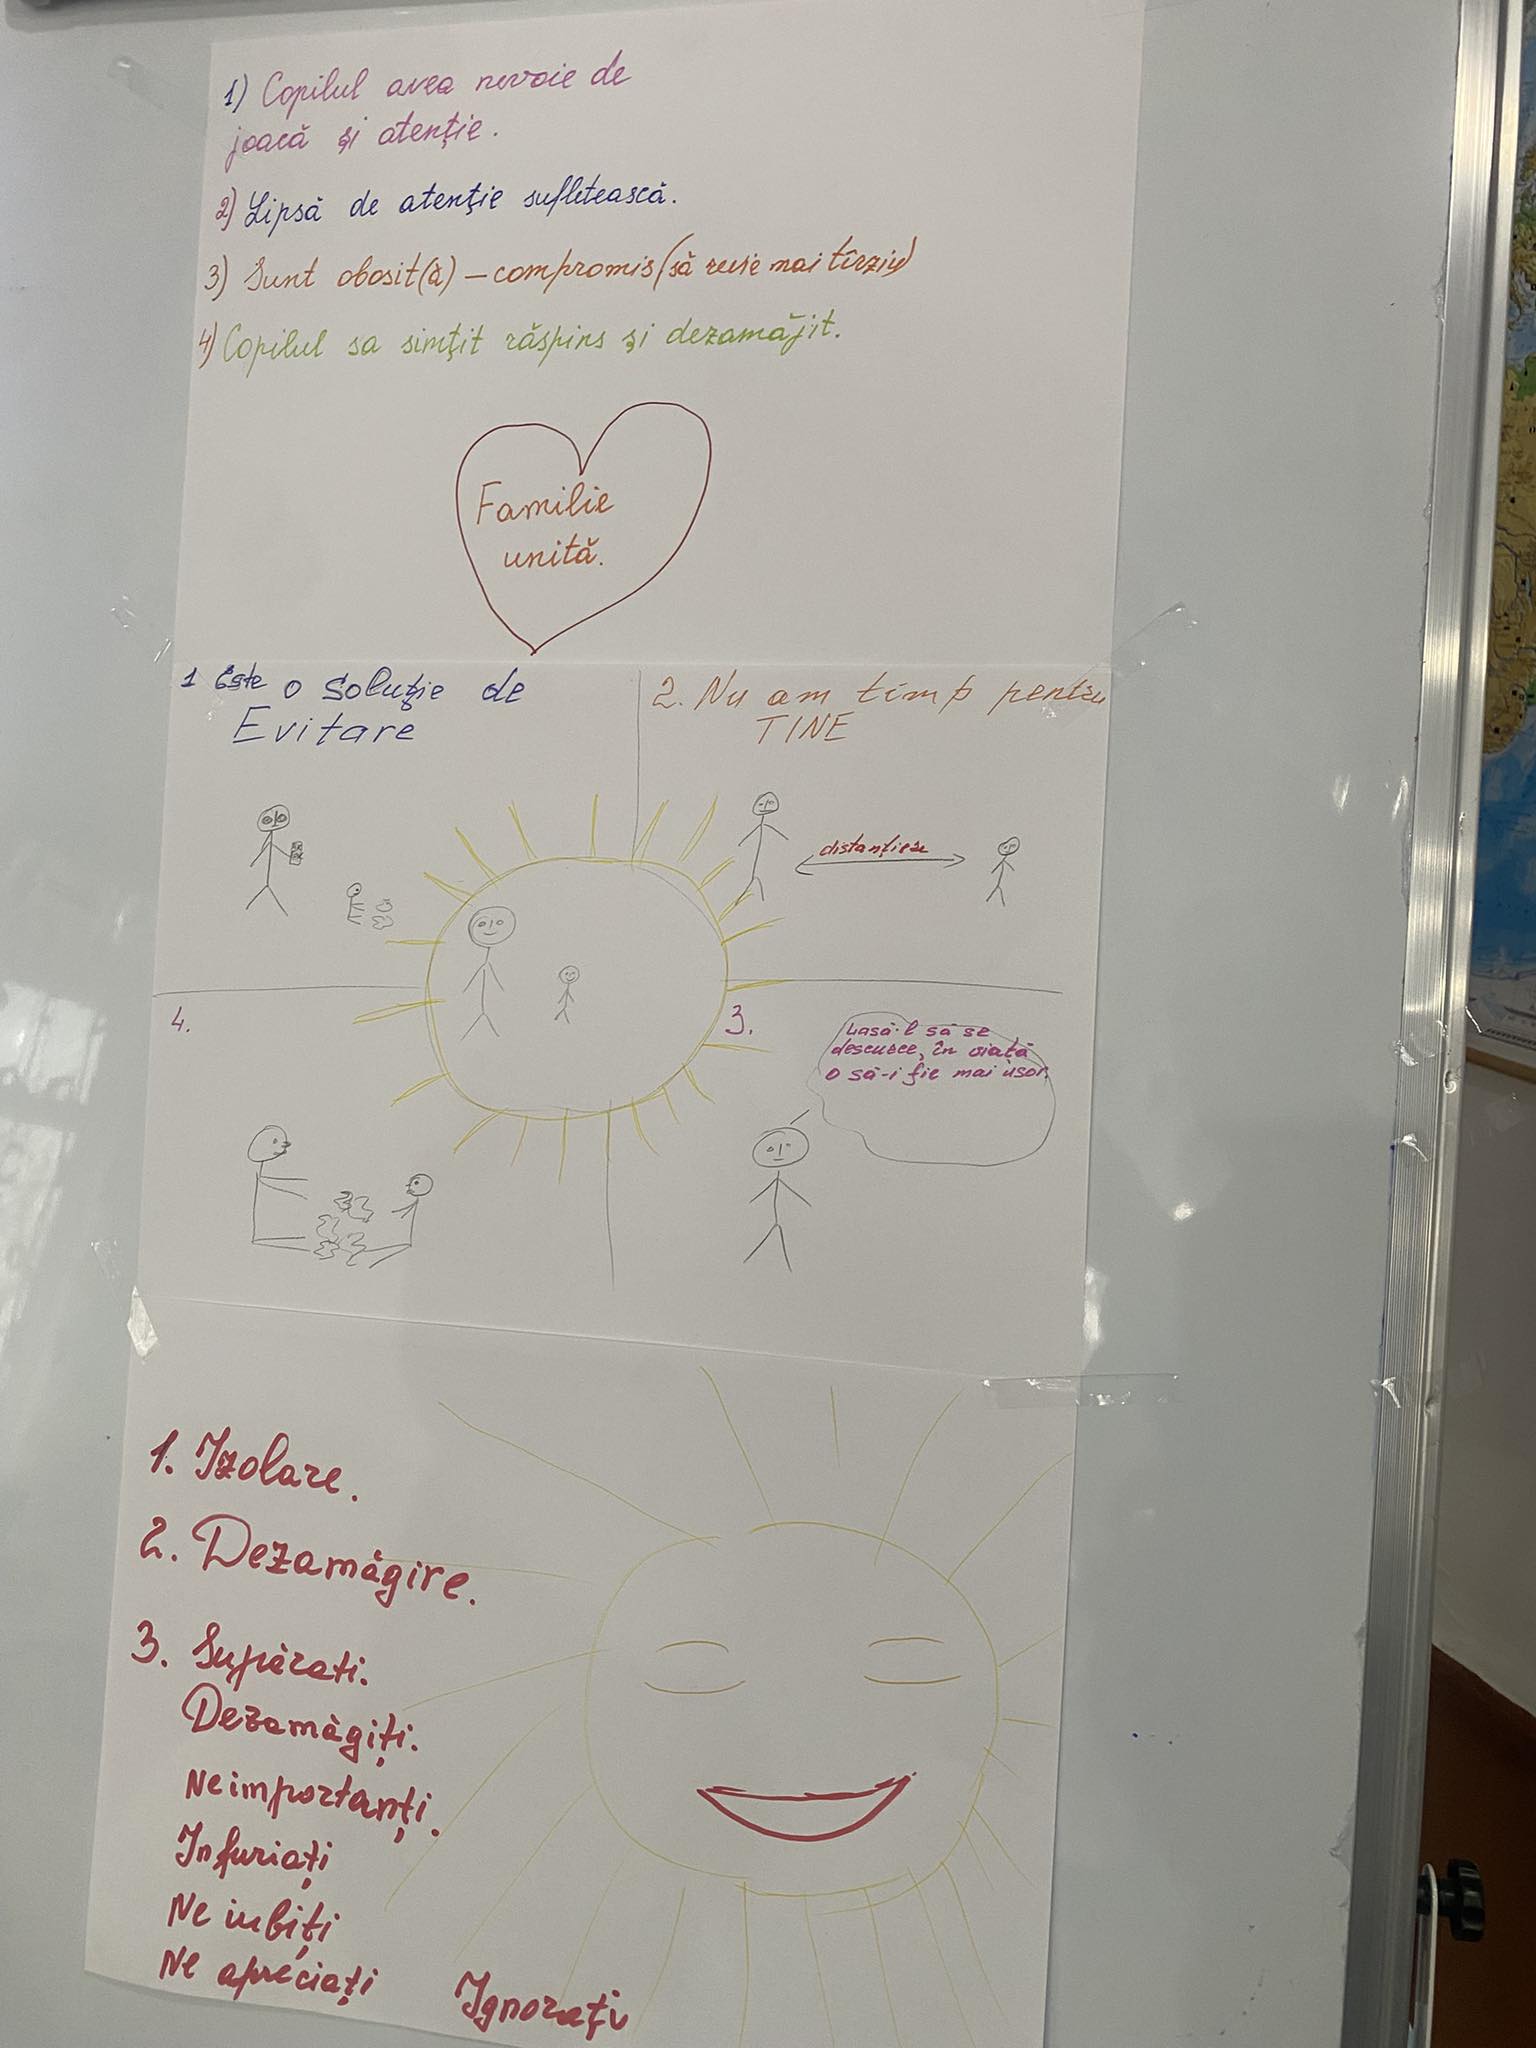 1) Copilul avea nevoie de
joacă și atenție.
2) Lipsă de atenție sufletească.
3) Sunt obosit(ă) – compromis (să revie mai tîrziu)
4) Copilul sa simțit răspins și dezamăjit.
Familie
unită.
1 Este o soluție de
Evitare
2. Nu am timp pentru
TINE
distanțiere
4.
3.
Lasă-l să se
descurce, în viață
o să-i fie mai ușor.
1. Izolare.
2. Dezamăgire.
3. Supărati.
Dezamăgiți.
Neimportanți.
Infuriați
Ne iubiți
Ne apreciați
Ignorați